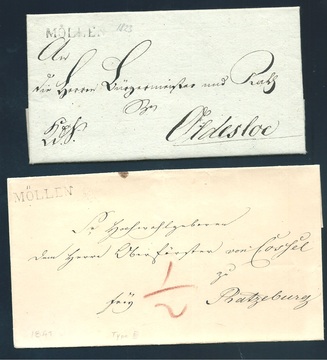 MÖLLEN 1823
An
die Herrn Bürgermeister und Rath
zu
Oldesloe
MÖLLEN
Sr Hochwohlgeboren
dem Herrn Oberförster von Cossel
zu
frey 1/2 Ratzeburg